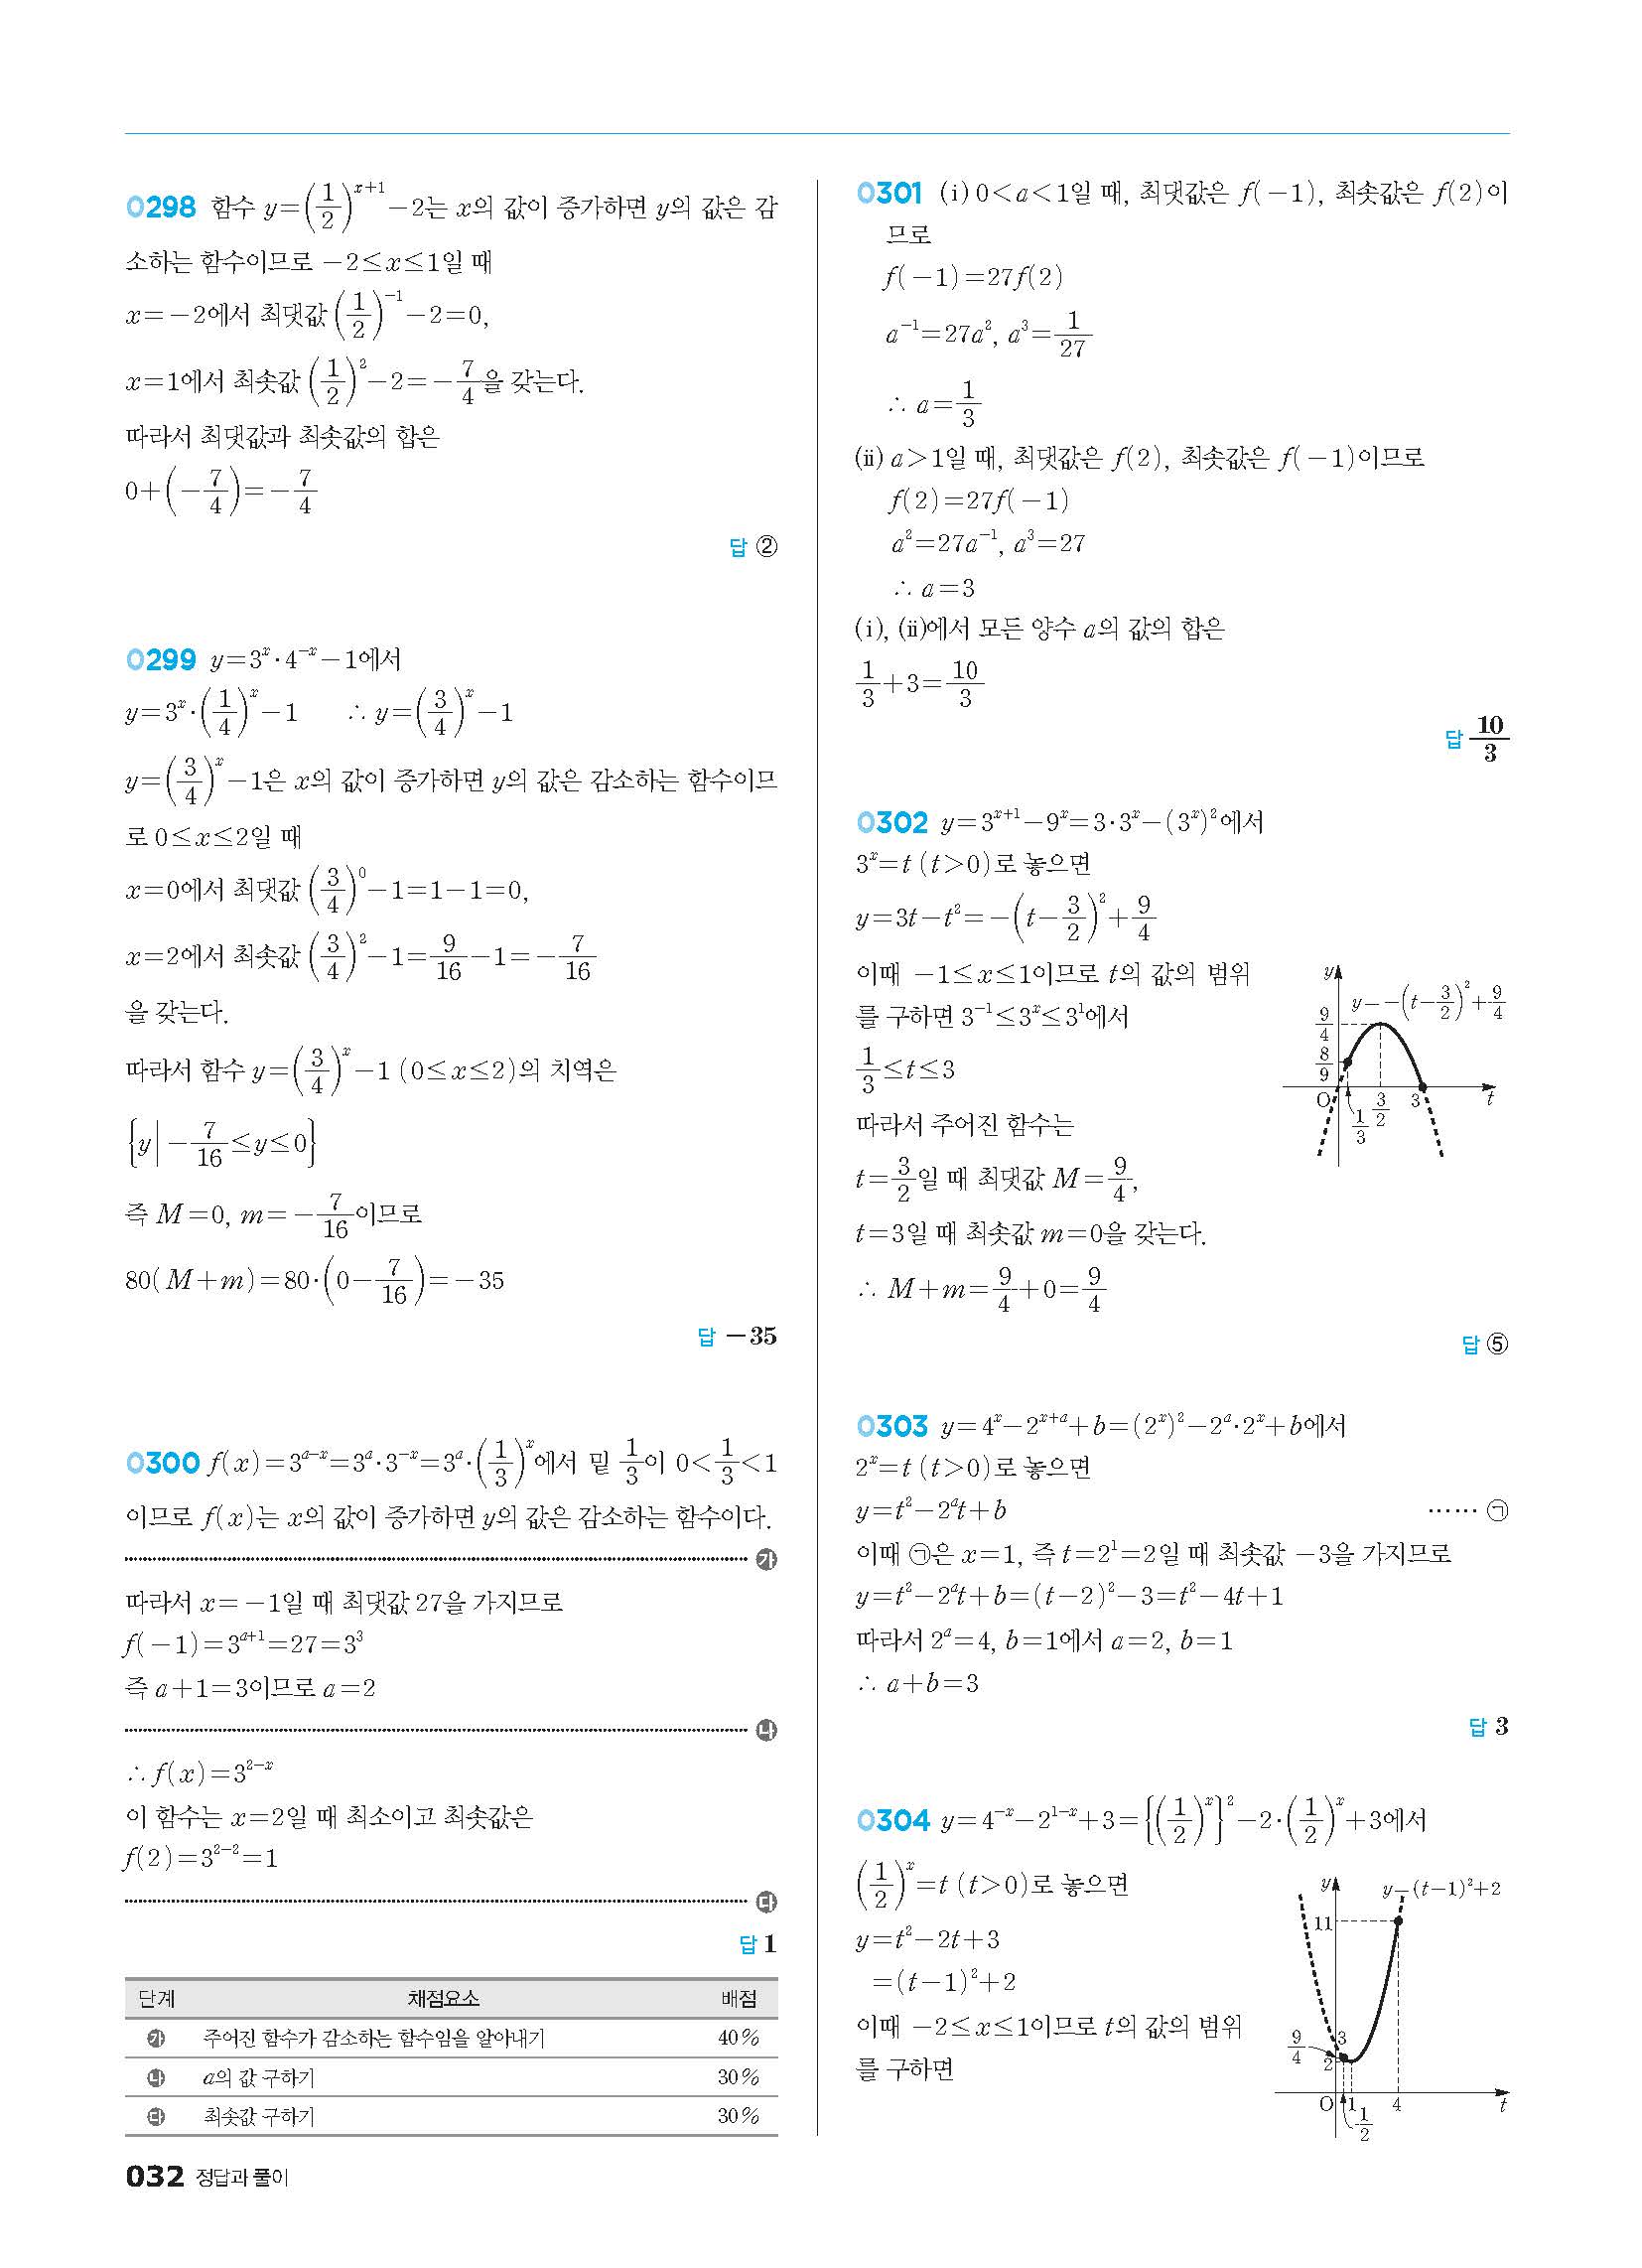 0298 함수 y=(1/2)^{x+1}-2는 x의 값이 증가하면 y의 값은 감
소하는 함수이므로 -2≤x≤1일 때
x=-2에서 최댓값 (1/2)^{-1}-2=0,
x=1에서 최솟값 (1/2)^2-2=-7/4을 갖는다.
따라서 최댓값과 최솟값의 합은
0+(-7/4)=-7/4
답 ②
0299 y=3^x·4^{-x}-1에서
y=3^x·(1/4)^x-1 ∴ y=(3/4)^x-1
y=(3/4)^x-1은 x의 값이 증가하면 y의 값은 감소하는 함수이므
로 0≤x≤2일 때
x=0에서 최댓값 (3/4)^0-1=1-1=0,
x=2에서 최솟값 (3/4)^2-1=9/16-1=-7/16
을 갖는다.
따라서 함수 y=(3/4)^x-1 (0≤x≤2)의 치역은
{y|-7/16≤y≤0}
즉 M=0, m=-7/16이므로
80(M+m)=80·(0-7/16)=-35
답 -35
0300 f(x)=3^{a-x}=3^a·3^{-x}=3^a·(1/3)^x에서 밑 1/3이 0<1/3<1
이므로 f(x)는 x의 값이 증가하면 y의 값은 감소하는 함수이다.
㉮
따라서 x=-1일 때 최댓값 27을 가지므로
f(-1)=3^{a+1}=27=3^3
즉 a+1=3이므로 a=2
㉯
∴ f(x)=3^{2-x}
이 함수는 x=2일 때 최소이고 최솟값은
f(2)=3^{2-2}=1
㉰
답 1
단계 채점요소 배점
㉮ 주어진 함수가 감소하는 함수임을 알아내기 40%
㉯ a의 값 구하기 30%
㉰ 최솟값 구하기 30%
032 정답과 풀이
0301 (ⅰ) 0<a<1일 때, 최댓값은 f(-1), 최솟값은 f(2)이
므로
f(-1)=27f(2)
a^{-1}=27a^2, a^3=1/27
∴ a=1/3
(ⅱ) a>1일 때, 최댓값은 f(2), 최솟값은 f(-1)이므로
f(2)=27f(-1)
a^2=27a^{-1}, a^3=27
∴ a=3
(ⅰ), (ⅱ)에서 모든 양수 a의 값의 합은
1/3+3=10/3
답 10/3
0302 y=3^{x+1}-9^x=3·3^x-(3^x)^2에서
3^x=t (t>0)로 놓으면
y=3t-t^2=-(t-3/2)^2+9/4
이때 -1≤x≤1이므로 t의 값의 범위
를 구하면 3^{-1}≤3^x≤3^1에서
1/3≤t≤3
따라서 주어진 함수는
t=3/2일 때 최댓값 M=9/4,
t=3일 때 최솟값 m=0을 갖는다.
∴ M+m=9/4+0=9/4
y
y=-(t-3/2)^2+9/4
9/4
8/9
O 1/3 3/2 3 t
답 ⑤
0303 y=4^x-2^{x+a}+b=(2^x)^2-2^a·2^x+b에서
2^x=t (t>0)로 놓으면
y=t^2-2^at+b …… ㉠
이때 ㉠은 x=1, 즉 t=2^1=2일 때 최솟값 -3을 가지므로
y=t^2-2^at+b=(t-2)^2-3=t^2-4t+1
따라서 2^a=4, b=1에서 a=2, b=1
∴ a+b=3
답 3
0304 y=4^{-x}-2^{1-x}+3={(1/2)^x}^2-2·(1/2)^x+3에서
(1/2)^x=t (t>0)로 놓으면
y=t^2-2t+3
=(t-1)^2+2
이때 -2≤x≤1이므로 t의 값의 범위
를 구하면
y
y=(t-1)^2+2
11
9/4 3
2
O 1/2 1 4 t